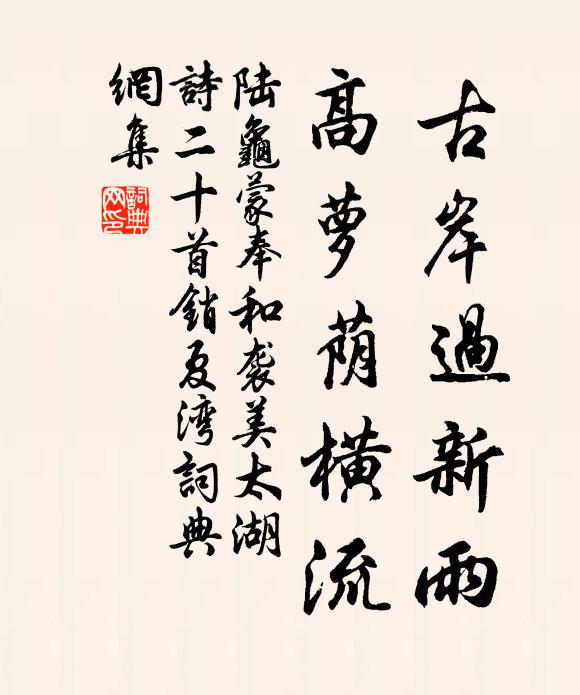 古岸過新雨
高萝荫橫流
陆龜蒙奉和袭美太湖
詩二十首銷夏湾詞典
網集
詞典
网印